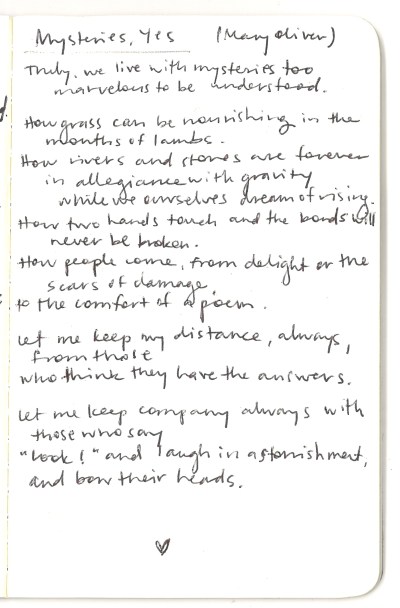 Mysteries, Yes (Mary Oliver)
Truly, we live with mysteries too
marvelous to be understood.
How grass can be nourishing in the
mouths of lambs.
How rivers and stones are forever
in allegiance with gravity
while we ourselves dream of rising.
How two hands touch and the bonds will
never be broken.
How people come, from delight or the
scars of damage,
to the comfort of a poem.
Let me keep my distance, always,
from those
who think they have the answers.
Let me keep company always with
those who say
"Look!" and laugh in astonishment,
and bow their heads.